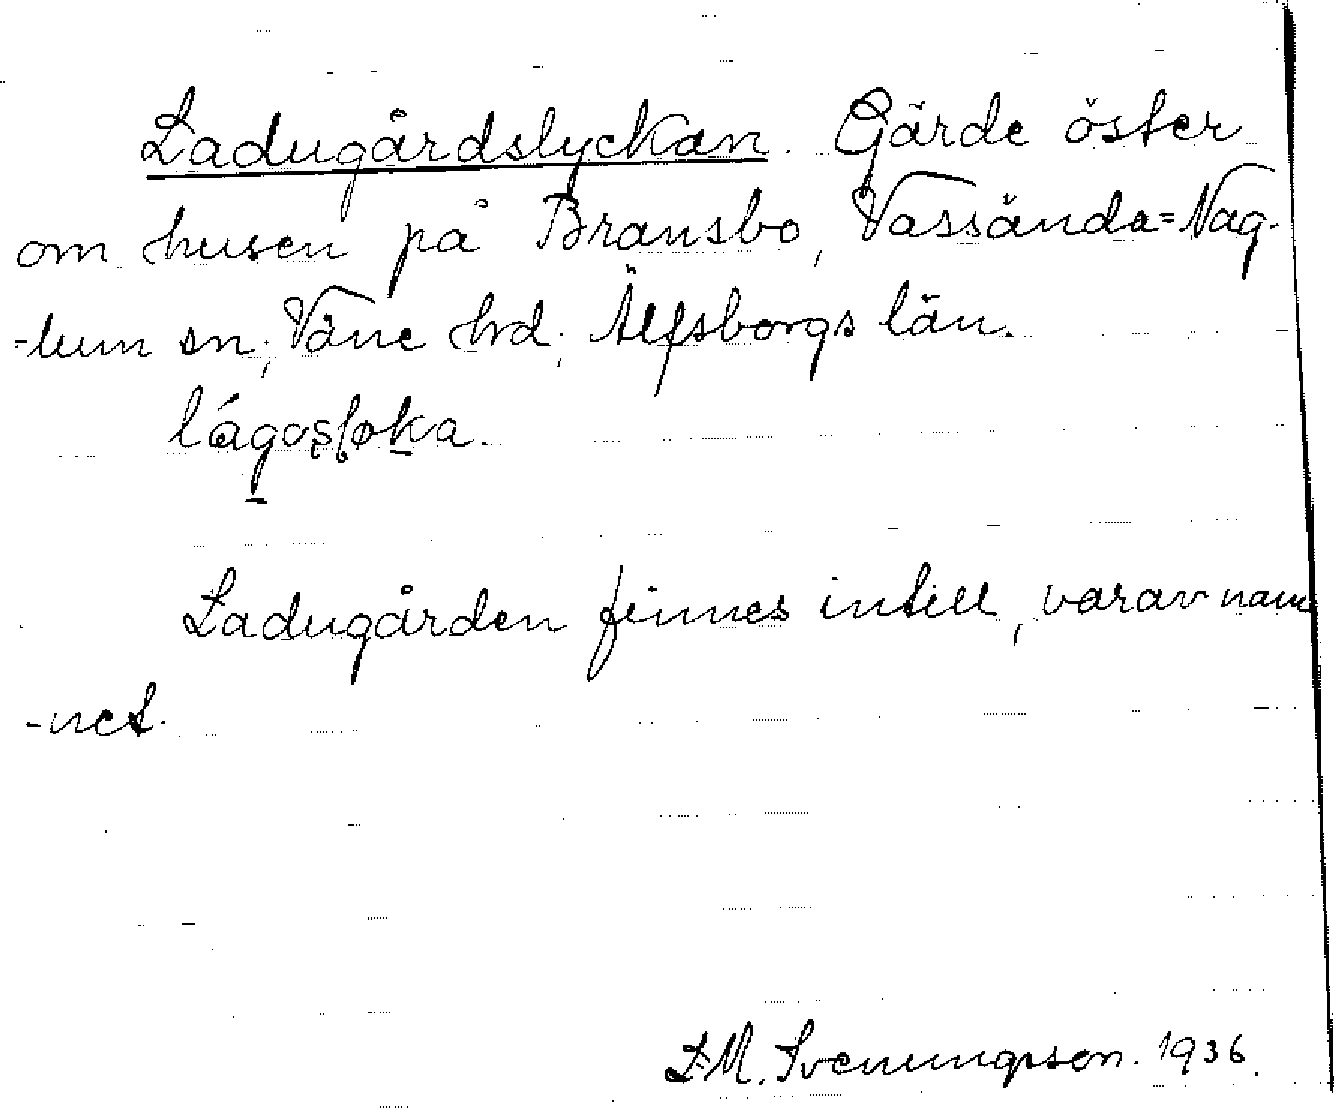 Ladugårdslyckan. Gärde öster
om husen på Bransbo, Vassända=Nag-
-lum sn, Väne hrd, Älfsborgs län.
Ladugården finnes intill, varav nam
-net.
Svenningson. 1936.